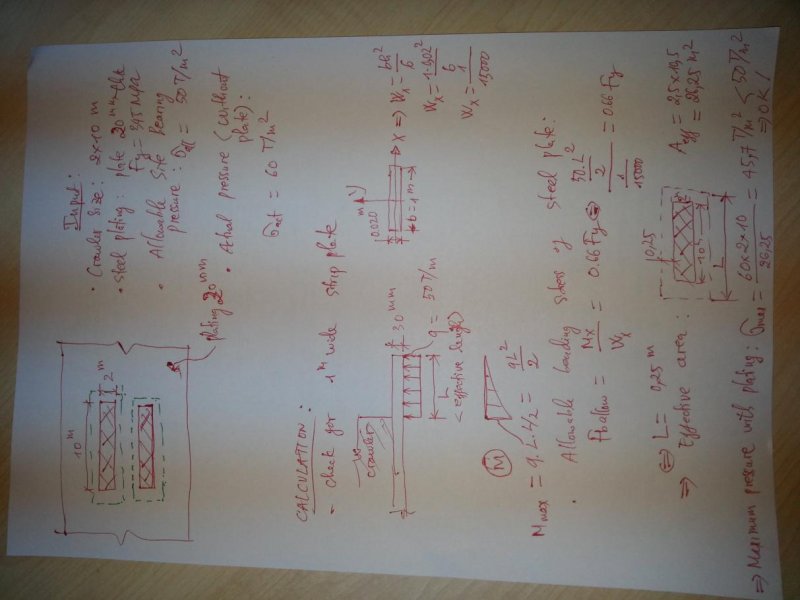 Input:
• Crawler size: 2x10 m
• Steel plating: plate 20 mm thk
Fy = 345 MPa
• Allowable site bearing
pressure: σall = 50 T/m²
• Actual pressure (without
plate):
σact = 60 T/m²
10 m
2 m
plating 20 mm
CALCULATION:
- Check for 1 m wide strip plate
crawler
30 mm
q = 50 T/m
L
(effective length)
0.020 m
y
X
b = 1 m
=> Wx = bh²/6
Wx = 1·0.02²/6
Wx = 1/15000
M
Mmax = q.L.L/2 = qL²/2
• Allowable bending stress of steel plate:
Fballow = Mx/Wx = 0.66 Fy <=> (50.L²/2)/(1/15000) = 0.66 Fy
<=> L = 0,25 m
=> Effective area:
0,25
10 m
L
Aeff = 2,5 x 10,5
= 26,25 m²
=> Maximum pressure with plating: σmax = 60x2x10/26,25 = 45,7 T/m² < 50 T/m²
=> OK!